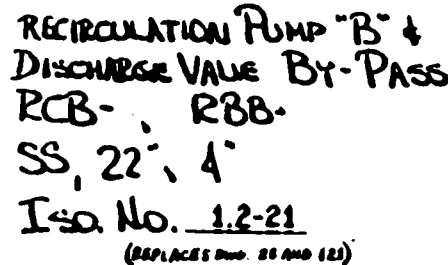 RECIRCULATION PUMP "B" &
DISCHARGE VALVE BY-PASS
RCB- , RBB-
SS, 22", 4"
ISO. NO. 1.2-21
(REPLACES DWG. 26 AND 121)